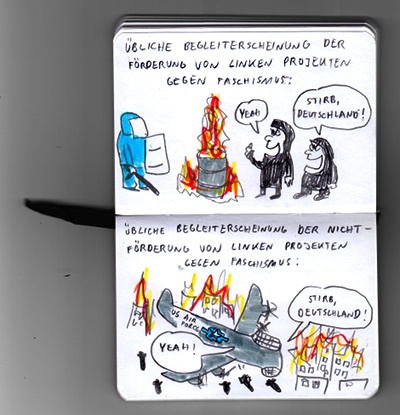 ÜBLICHE BEGLEITERSCHEINUNG DER
FÖRDERUNG VON LINKEN PROJEKTEN
GEGEN FASCHISMUS:
YEAH!
STIRB,
DEUTSCHLAND!
ÜBLICHE BEGLEITERSCHEINUNG DER NICHT-
FÖRDERUNG VON LINKEN PROJEKTEN
GEGEN FASCHISMUS:
US AIR
FORCE
YEAH!
STIRB,
DEUTSCHLAND!